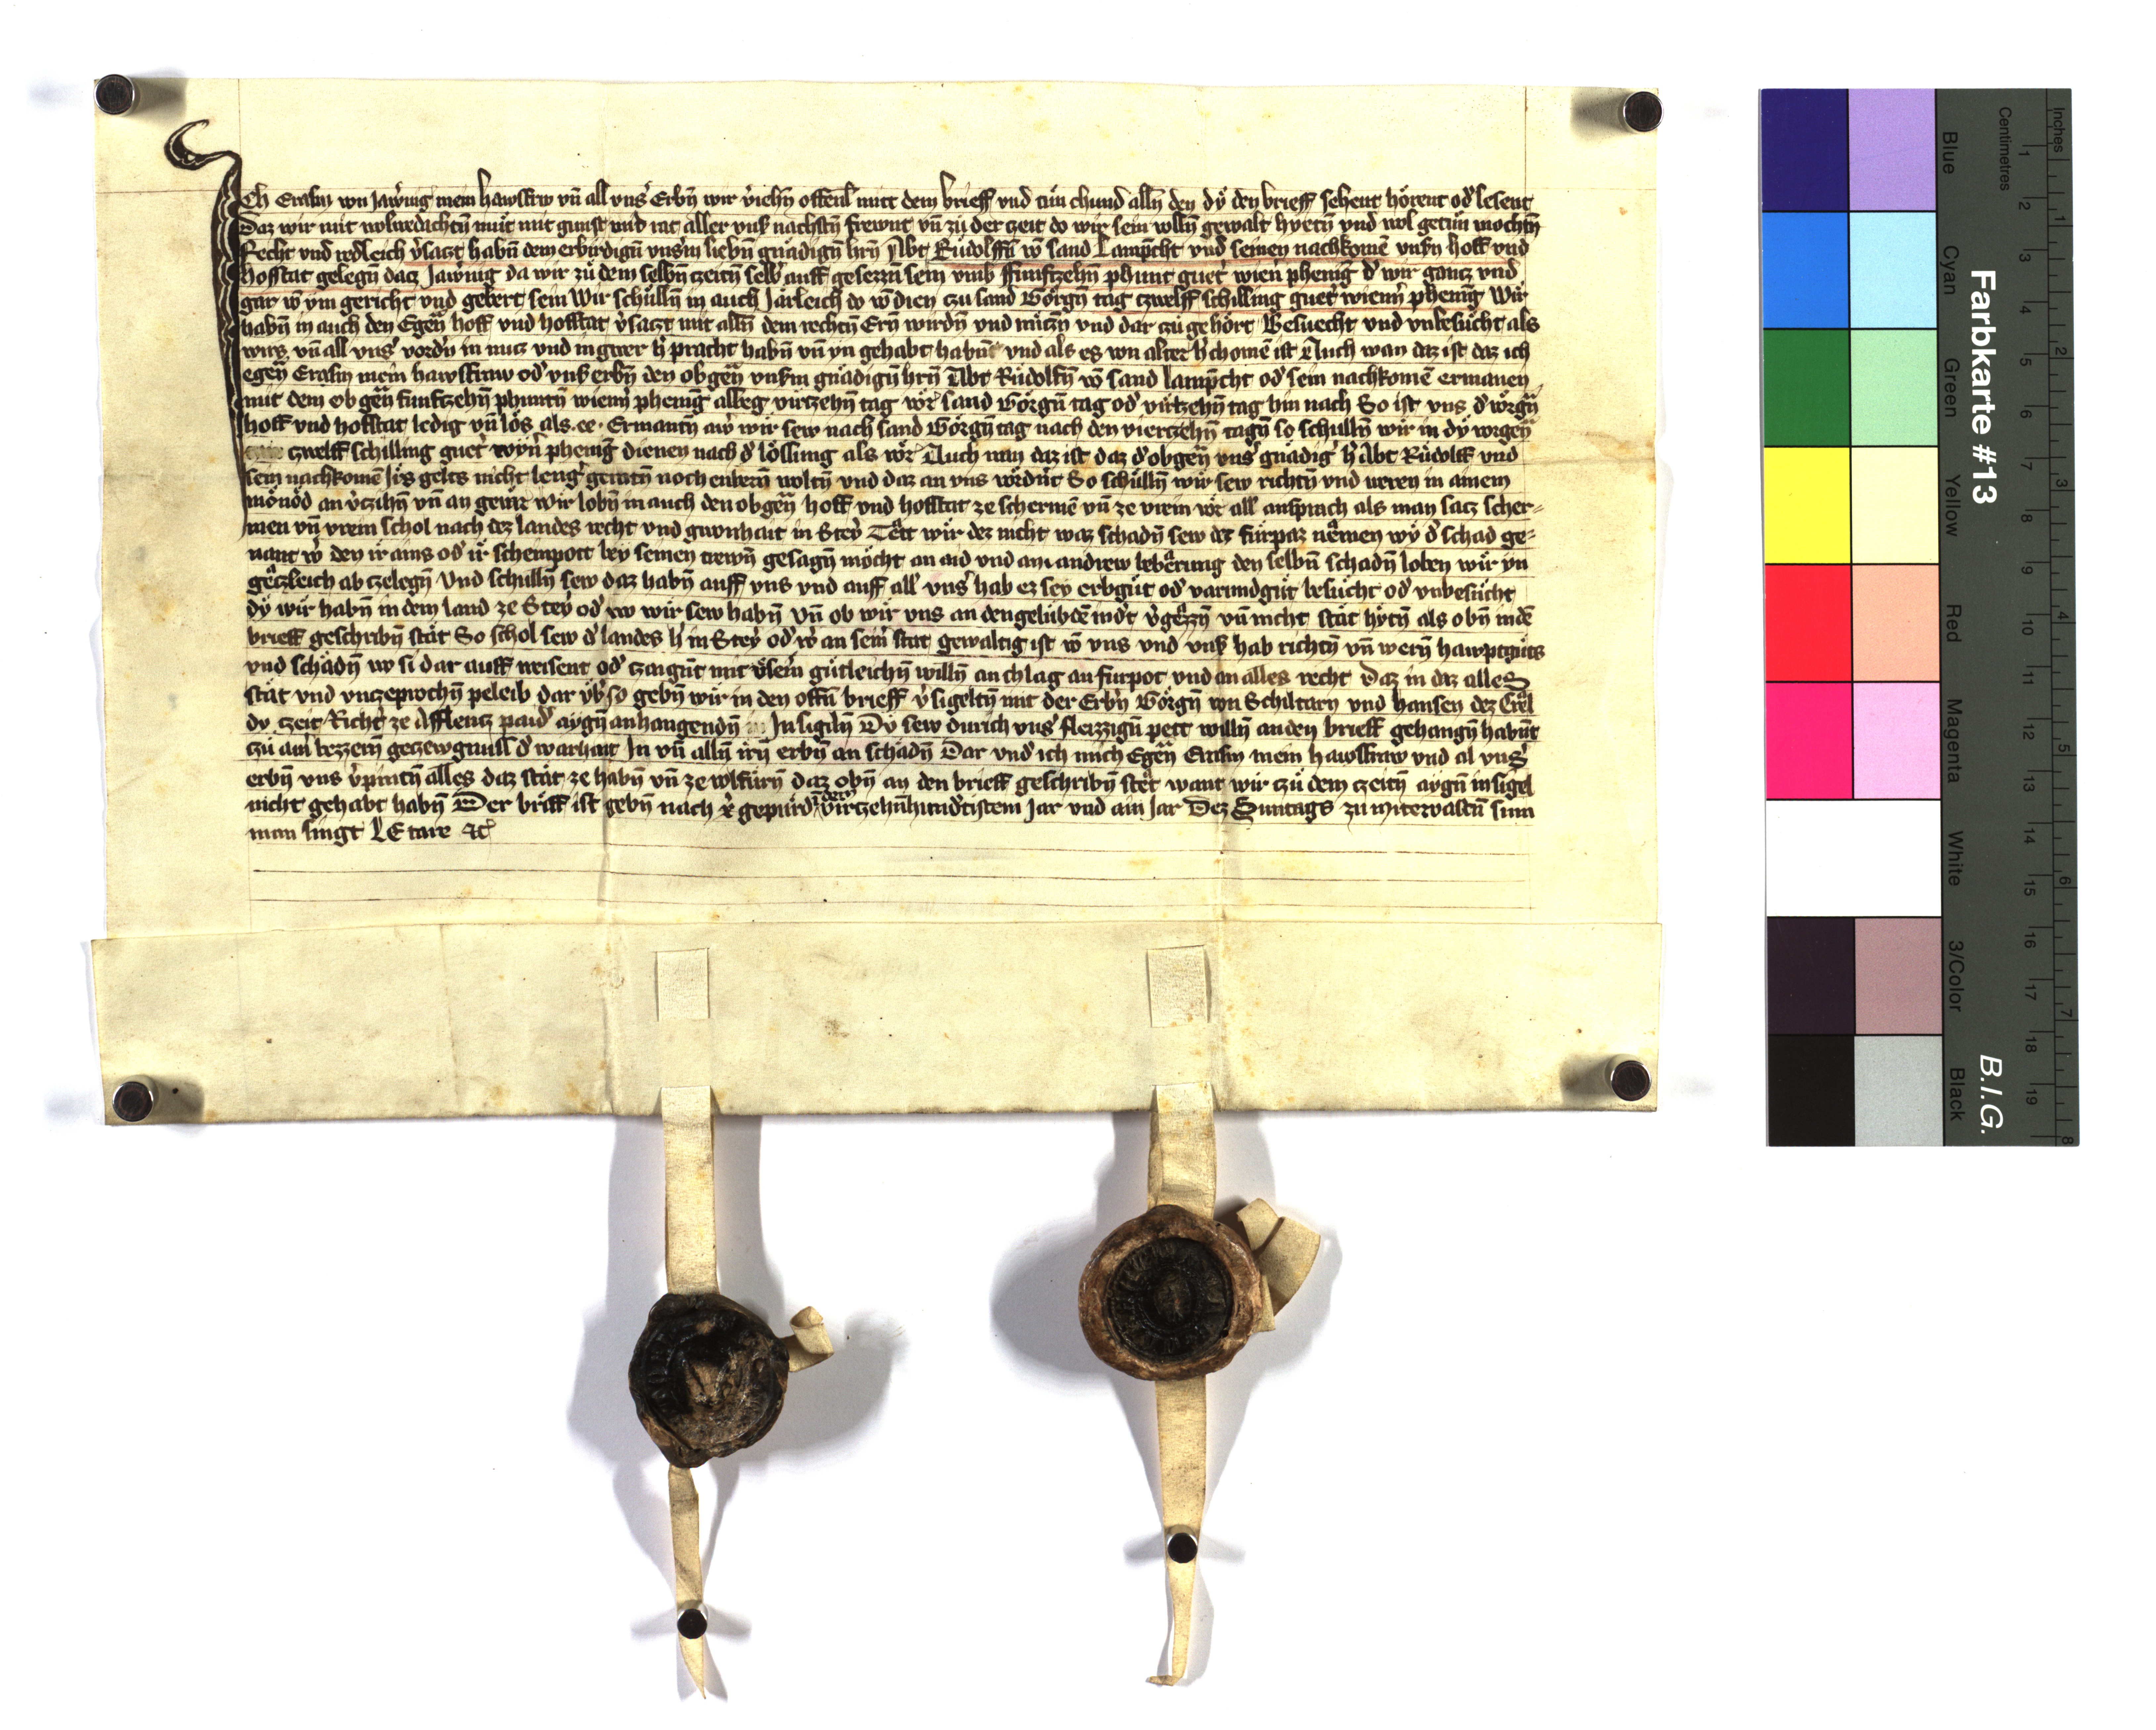 Ich Erasm von Jawͤrnig mein hawsfrw vn̄ all vnsˀ Erbn̄ wir vˀiehn̄ offenlˀ mitt dem brieff vnd tůn chund alln̄ den dÿ den brieff sehent hörent odˀ lesent
Daz wir mit wolwedachtn̄ můt mit gunst vnd rat aller vnsˀ nachstn̄ frewnt vn̄ zů der zeit do wir sein wolln̄ gewalt hyetn̄ vnd wol getůn mochtn̄
Recht vnd redleich vˀsaczt habn̄ dem erbirdign̄ vnsˀm liebn̄ gnädign̄ hrn̄ Abt Růdolffn̄ vō sand Lamp̄cht vnd seinen nachkomē vnsˀn hoff vnd
hofstat gelegn̄ dacz Jawͤrnig da wir zů dem selbn̄ czeitn̄ selbˀ auff gesezzn sein vmb ffunfczehn̄ phunt guetˀ wienˀ phenig dˀ wir gancz vnd
gar vō ym gericht vnd gebert sein Wir schůlln̄ in auch Järleich do vō dien czu sand Görgn̄ tag czwelff schilling guetˀ wienn̄ phenig Wir
habn̄ in auch den Egen̄ hoff vnd hofstat vˀsaczt mit alln̄ dem rechtn̄ Ern̄ wirdn̄ vnd nüczn̄ vnd dar zu gehört Besuecht vnd vnbesücht als
wirs vn̄ all vnsˀ vordˀn in nucz vnd in gwer hˀpracht habn̄ vn̄ yn gehabt habn̄t vnd als es von alter hˀchomē ist Auch wan daz ist daz ich
egen̄ Erasm mein hawsfraw odˀ vnsˀ erbn̄ den obgen̄ vnsˀm gnädign̄ hrn̄ Abt Růdolfn̄ vō sand lamp̄cht odˀ sein nachkomē ermanen
mit dem obgen̄ funfczehn̄ phuntn̄ wienn̄ phenig albeg virczehn̄ tag vorˀ sand Görgn̄ tag odˀ virczehn̄ tag hin nach So ist vns dˀ vorgn̄
hoff vnd hofstat ledig vn̄ lös als ee · Ermantn̄ awˀ wir sew nach sand Görgn̄ tag nach den vierczehn̄ tagn̄ so schulln̄ wir in dÿ vorgen̄
czwelff schilling guetˀ wyn̄ phenig dienen nach dˀ lösung als vorˀ Auch wan daz ist daz dˀ obgen̄ vnsˀ gnädigˀ hˀ Abt Růdolff vnd
sein nachkomē Jrˀs gelts nicht lengˀ geratn̄ noch enbern̄ woltn̄ vnd daz an vns vordˀnt So schulln̄ wir sew richtn̄ vnd weren in ainem
mönöd an vˀczihn̄ vn̄ an geuer Wir lobn̄ in auch den obgen̄ hoff vnd hofstat ze schermē vn̄ ze vrein vor all ansprach als man sacz scher⸗
men vn̄ vrein schol nach dez landes recht vnd gwonhait in Steyrˀ Tët wir dez nicht waz schadn̄ sew dez fürpaz nëmen wÿ dˀ schad ge⸗
nant wˀ den ir ains odˀ ir scheinpott bey seinen trewn̄ gesagn̄ möcht an aid vnd an andrew bebërung den selbn̄ schadn̄ loben wir yn
gëczleich ab czelegn̄ Vnd schulln̄ sew daz habn̄ auff vns vnd auff all vnsˀ hab ez sey erbgůt odˀ varundgůt besücht odˀ vnbesücht
dÿ wir habn̄ in dem land ze Steyˀ odˀ wo wir sew habn̄ Vn̄ ob wir vns an den gelübdē indˀt vˀgëzzn̄ vn̄ nicht stät hytn̄ als obn̄ in dē
brieff geschribn̄ stät So schol sew dˀ landes hˀ in Steyˀ odˀ wˀ an seinˀ stat gewaltig ist vō vns vnd vnsˀ hab richtn̄ vn̄ wern̄ hawptgůts
vnd schädn̄ wo si dar auff weisent odˀ czaigūt mit vnsˀm gütleichn̄ willn̄ an chlag an fürpot vnd an alles recht Daz in daz alles
stät vnd vnczeprochn̄ peleib dar vbˀ so gebn̄ wir in den offn̄ brieff vˀsigeltn̄ mit der Erbˀn Görgn̄ von Schiltarn vnd hansen dez Cröl
dy czeit Richtˀ ze Afflencz paidˀ aygn̄ anhangendn̄ Insigiln̄ Dÿ sew durich vnsˀ fleizzign̄ pett willn̄ an den brieff gehangn̄ habn̄t
czu aim bezzern̄ geczewgnuss dˀ warhait In vn̄ alln̄ irn̄ erbn̄ an schadn̄ Dar vndˀ ich mich Egen̄ Erasm mein hawsfraw vnd al vnsˀ
erbn̄ vns vˀpintn̄ alles daz stät ze habn̄ vn̄ ze volfürn̄ daz obn̄ an den brieff geschribn̄ stët want wir czů dem czeitn̄ aygn̄ insigel
nicht gehabt habn̄ Der briff ist gebn̄ nach xˀ gepurdˀ dem virczehn̄hundˀtistem Jar vnd ain Jar Dez Suntags zu mitervastn̄ sunn
man singt LEtare ꝛcˀ
Farbkarte #13
B.I.G.
Inches
Centimetres
Blue
Cyan
Green
Yellow
Red
Magenta
White
3/Color
Black
1 2 3 4 5 6 7 8 9 10 11 12 13 14 15 16 17 18 19
1 2 3 4 5 6 7 8